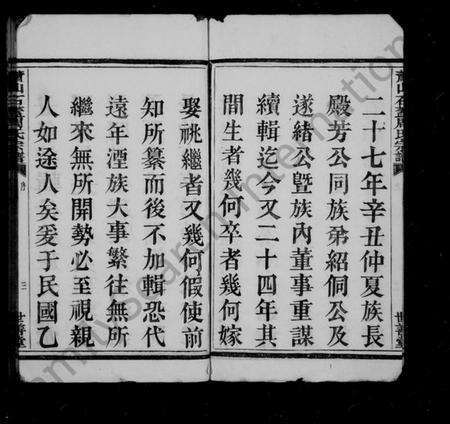 二十七年辛丑仲夏族長
殿芳公同族弟紹侗公及
遂緒公暨族內董事重謀
續輯迄今又二十四年其
間生者幾何卒者幾何嫁
娶祧繼者又幾何假使前
知所纂而後不加輯恐代
遠年湮族大事繁往無所
繼來無所開勢必至視親
人如途人矣爰于民國乙
世善堂
三
世善堂